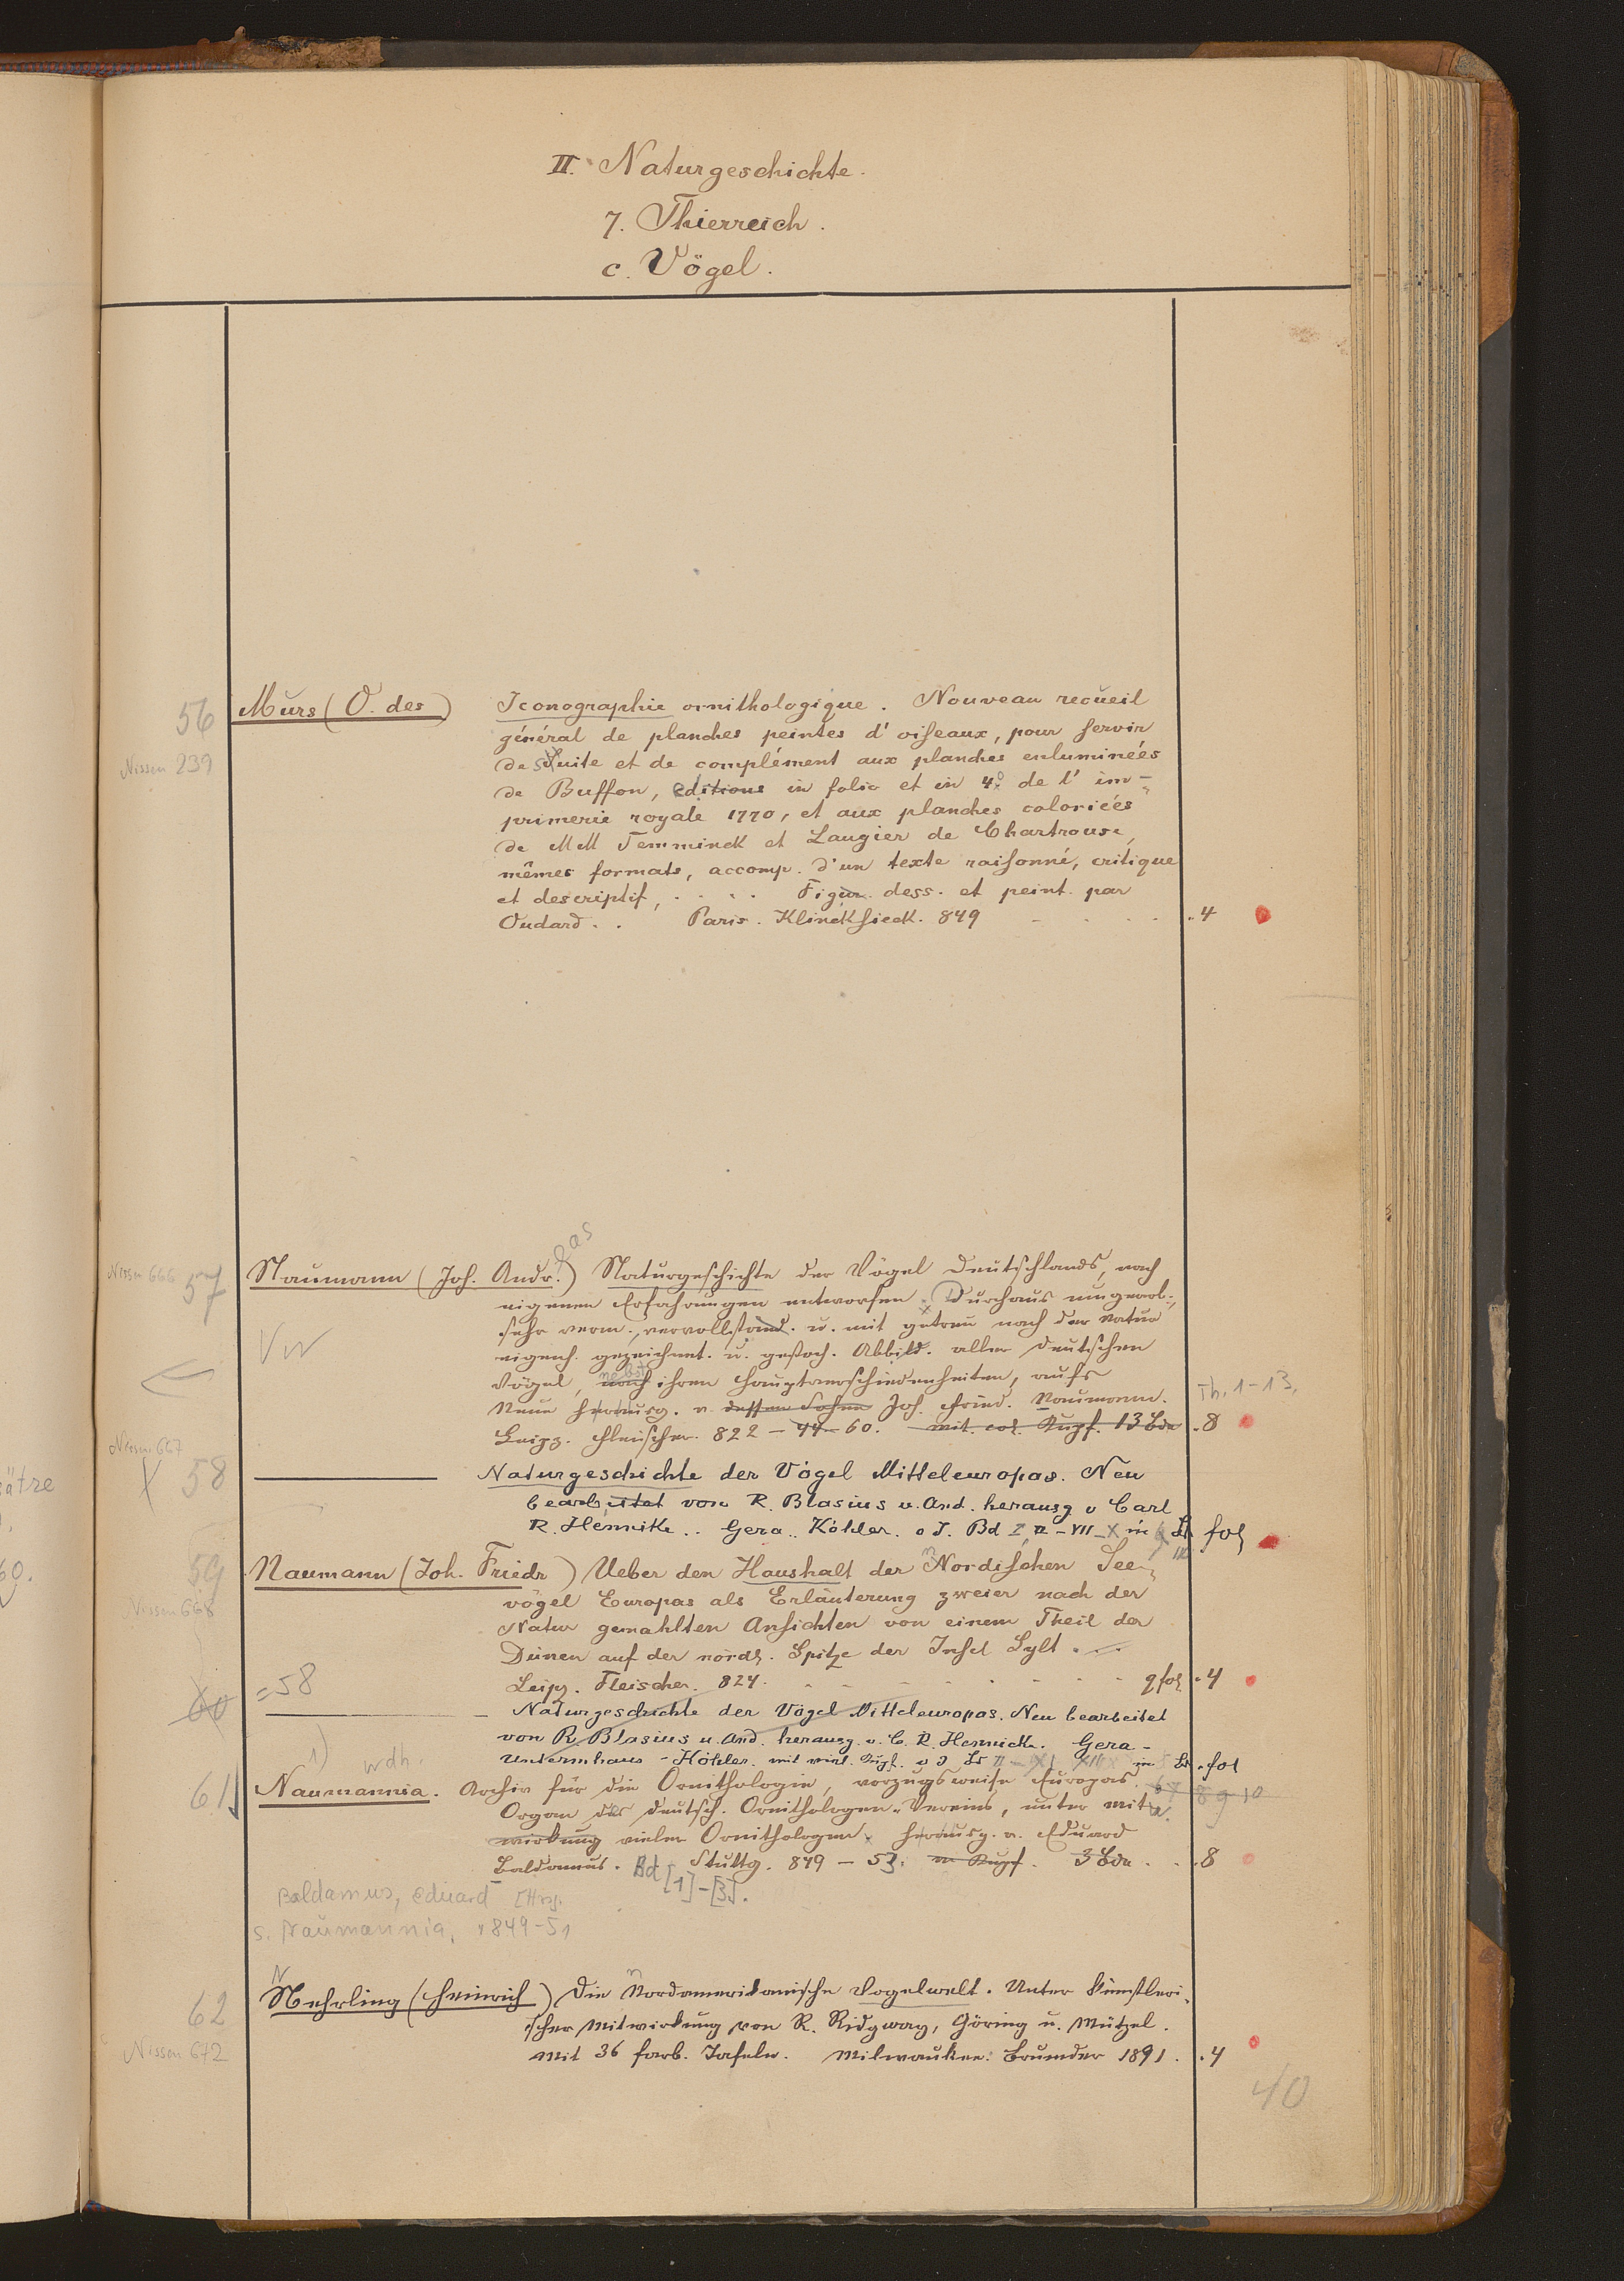 II. Naturgeschichte.
7. Thierreich.
c. Vögel.
56 Murs (O. des) Iconographie ornithologique. Nouveau recueil
général de planches peintes d'oiseaux, pour servir
Nissen 239 de suite et de complément aux planches enluminées
de Buffon, editions in folio et in 4° de l'im-
primerie royale 1770, et aux planches coloriées
de MM Temminck et Laugier de Chartrouse,
mêmes formats, accomp. d'un texte raisonné, critique
et descriptif, . . . . Figur. dess. et peint. par
Oudard. . Paris. Klincksieck. 849 - . . . . 4
Nissen 666 57 Naumann (Joh. Andr.) Naturgeschichte der Vögel Deutschlands, nach
eigenen Erfahrungen entworfen. Durchaus umgearb.,
sehr verm., vervollständ. u. mit getreu nach der Natur
eigenh. gezeichnet. u. gestoch. Abbild. aller deutschen
Vögel, nebst ihren Hauptverschiedenheiten, aufs
Neue herausg. v. dessen Sohne Joh. Fried. Naumann. Th. 1-13.
Leipz. Fleischer. 822 - 44 - 60. mit. col. Kupf. 13 Bde . 8
Nissen 667
58 Naturgeschichte der Vögel Mitteleuropas. Neu
bearbeitet von R. Blasius u. And. herausg v Carl
R. Hennicke. . Gera. . Köhler. o J. Bd I, II - VII - X in fol
59 Naumann (Joh. Friedr) Ueber den Haushalt der Nordischen See-
vögel Europas als Erläuterung zweier nach der
Nissen 668 Natur gemahlten Ansichten von einem Theil der
Dünen auf der nördl. Spitze der Insel Sylt. -
Leipz. Fleischer. 824. . . . . . . q fol . 4
60 = 58
Naturgeschichte der Vögel Mitteleuropas. Neu bearbeitet
von R. Blasius u. And. herausg. v. C. R. Hennicke. Gera-
Untermhaus - Köhler. mit viel. Kupf. o J . fol
1) wdh.
61 Naumannia. Archiv für die Ornithologie, vorzugsweise Europas.
Organ des deutsch. Ornithologen-Vereins, unter Mit-
wirkung vieler Ornithologen herausg. v. Eduard
Baldamus. Bd [1]-[3]. Stuttg. 849 - 53. m Kupf. 3 Bde . . . 8
Baldamus, Eduard [Hrsg.
s. Naumannia. 1849-51
62 Nehrling (Heinrich) Die Nordamerikanische Vogelwelt. Unter künstleri-
scher Mitwirkung von R. Ridgway, Göring u. Mützel.
Nissen 672 Mit 36 farb. Tafeln. Milwaukee: Brumder 1891 . . 4
40